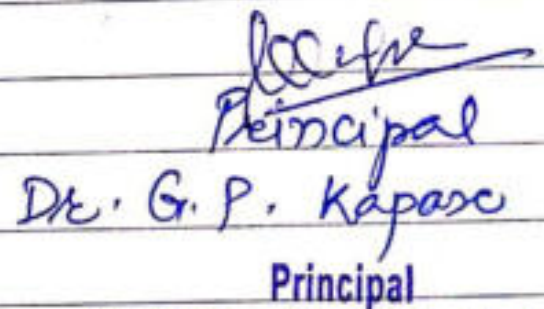 Principal
Dr. G. P. Kapase
Principal